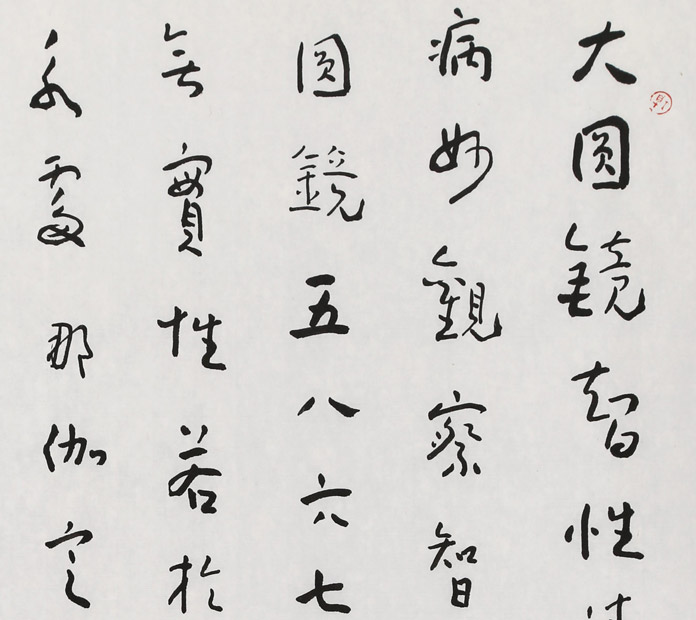 大圓鏡智性
病妙觀察智
圓鏡五八六七
無實性若於
永處那伽定